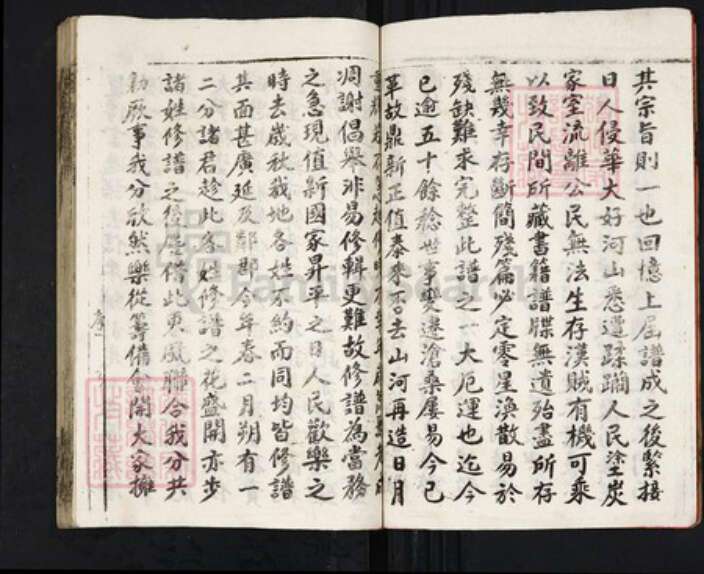 其宗旨則一也回憶上屆譜成之後緊接
日人侵華大好河山悉遭蹂躪人民塗炭
家室流離公民無法生存漢賊有機可乘
以致民間所藏書籍譜牒無遺殆盡所存
無幾幸存斷簡殘篇必定零星渙散易於
殘缺難求完整此譜之一大厄運也迄今
已逾五十餘稔世事變遷滄桑屢易今已
革故鼎新正值泰來否去山河再造日月
凋謝倡舉非易修輯更難故修譜為當務
之急現值新國家昇平之日人民歡樂之
時去歲秋我地各姓不約而同均皆修譜
其面甚廣延及鄰郡今年春二月朔有一
二分諸君趁此各姓修譜之花盛開亦步
諸姓修譜之後塵借此東風聯合我分共
勷厥事我分欣然樂從籌備會開大家擁
序二
FamilySearch